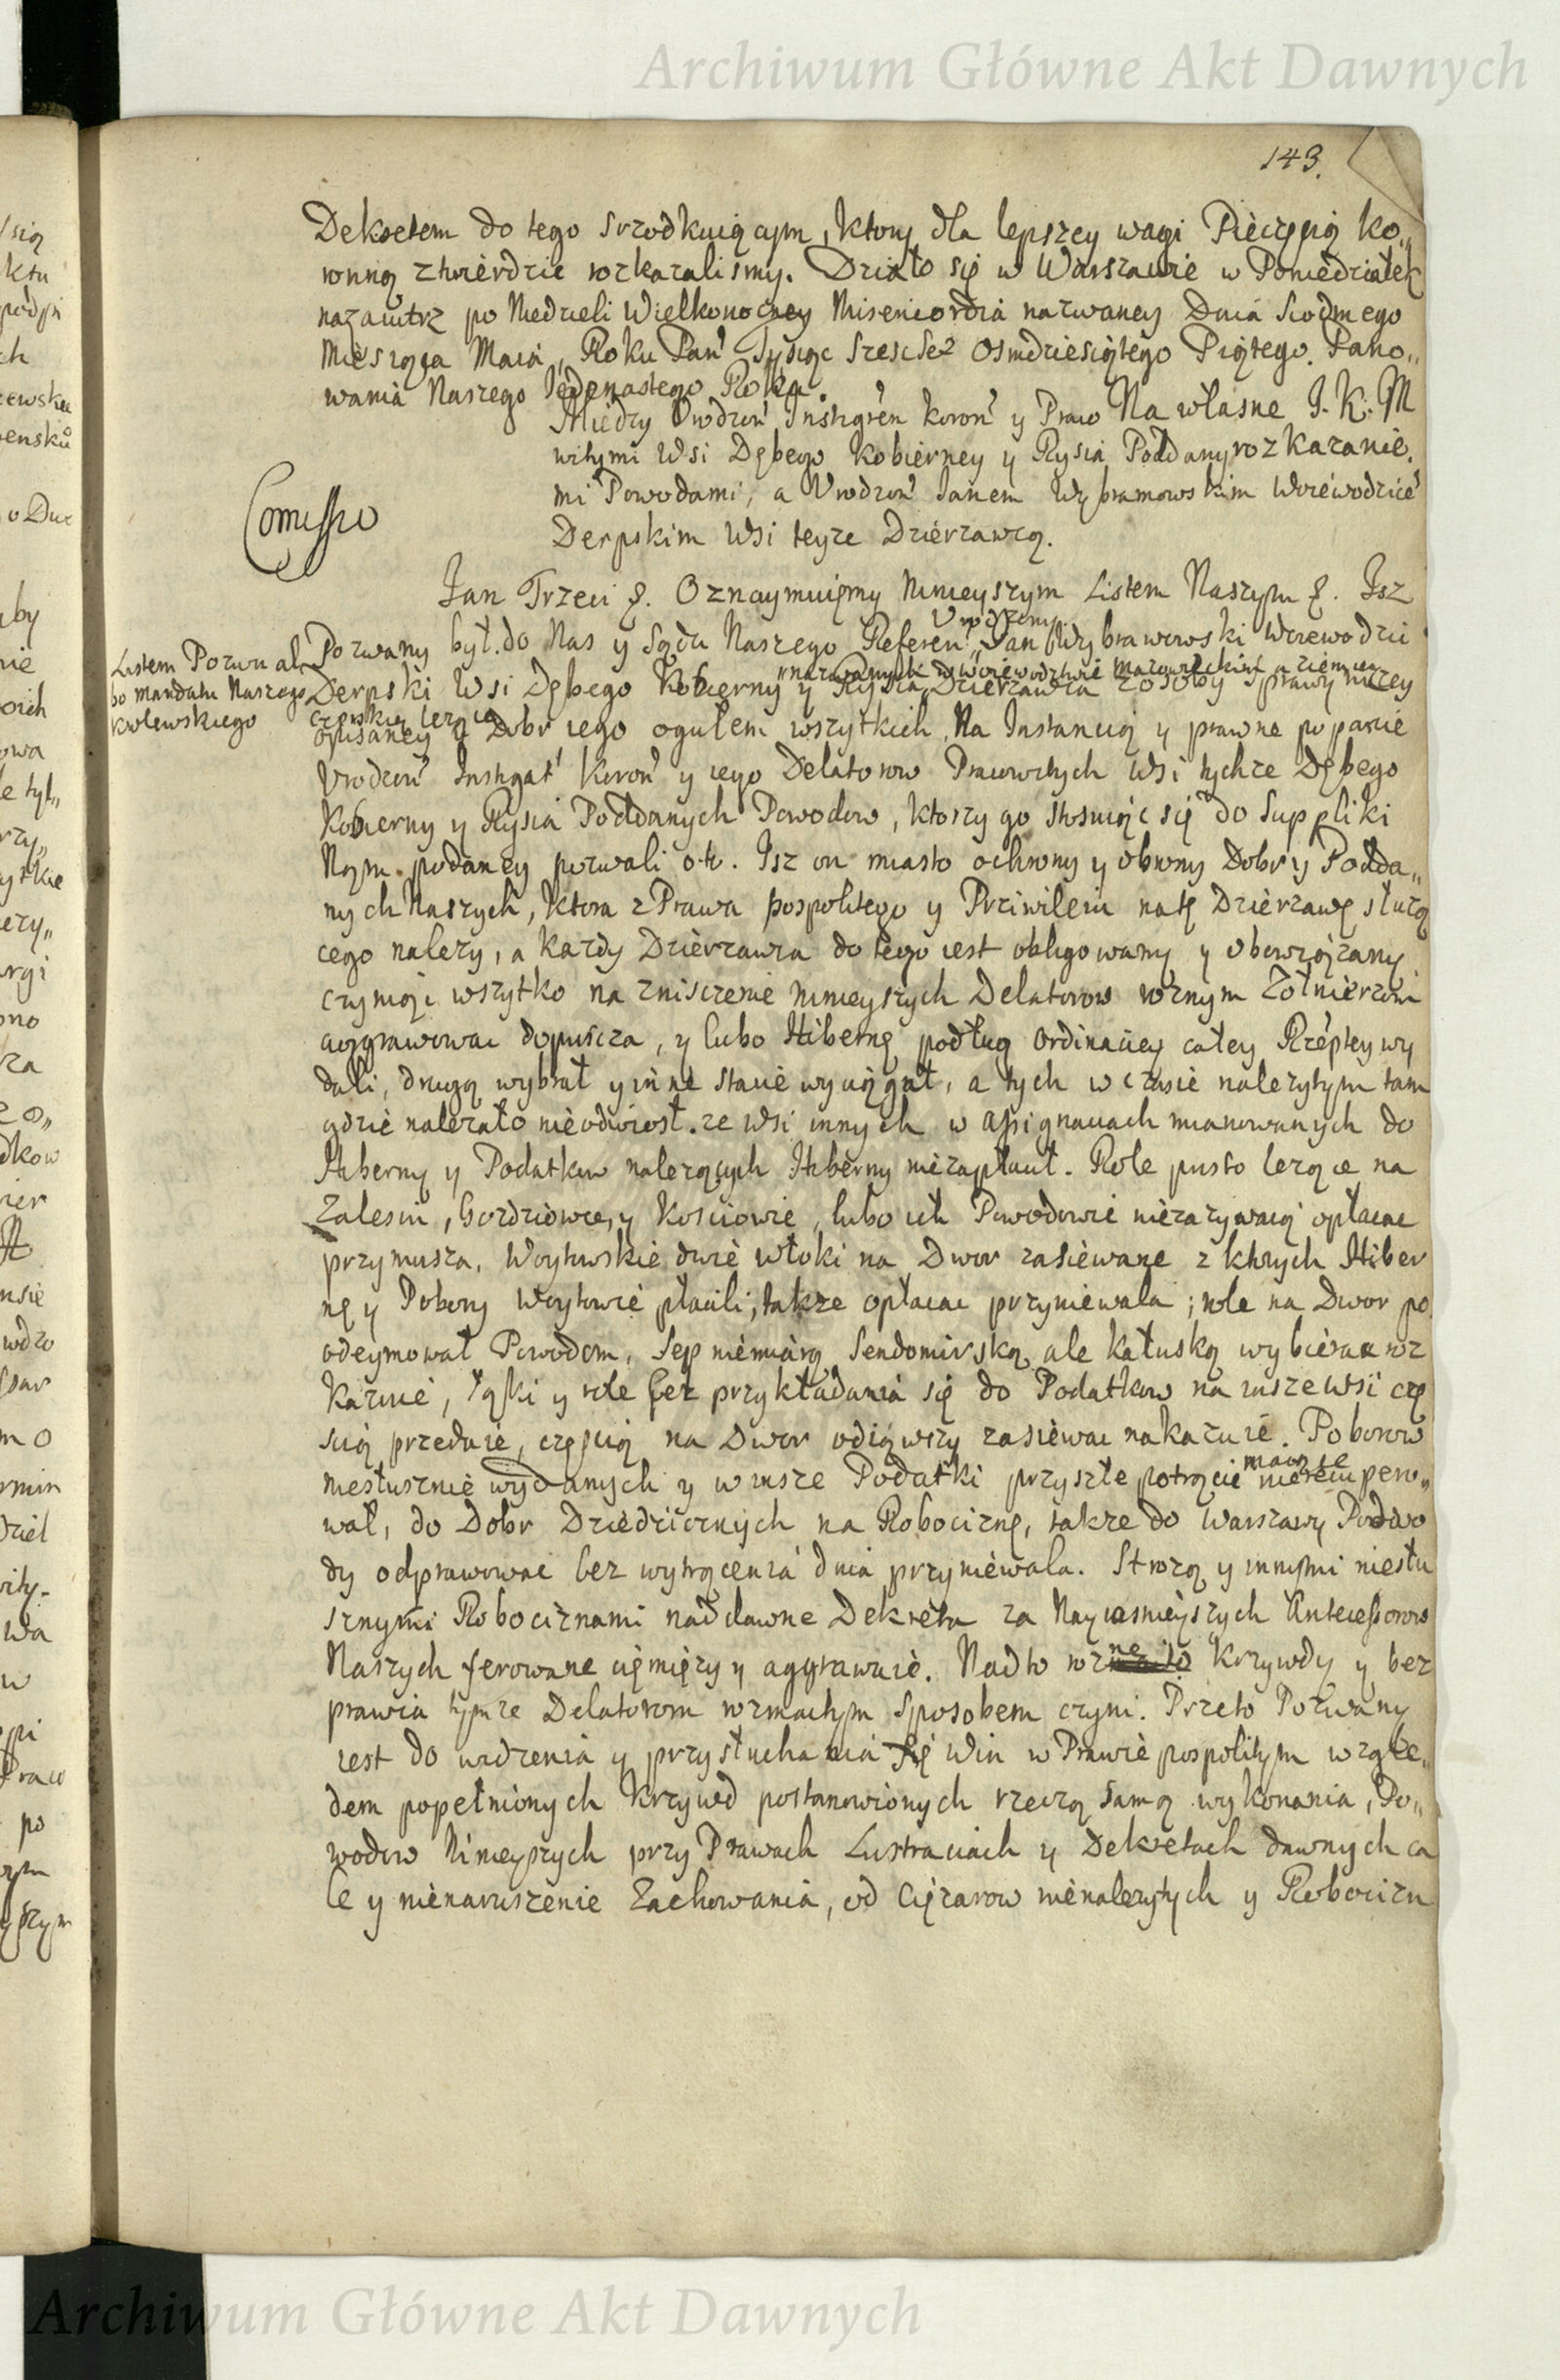 Archiwum Główne Akt Dawnych
143.
Dekretem do tego srzodkuiącym, ktory dla lepszey wagi Pieczęcią ko„
ronną ztwierdzic rozkazalismy. Działo się w Warszawie w Poniedziałek
nazaiutrz po Niedzieli Wielkonocney Misericordia nazwaney Dnia Siodmego
Miesiąca Maia, Roku Pan Tysiąc Szescset Osmdziesiątego Piątego. Pano„
wania Naszego Iedenastego Roku.
Między Vrodzon Instigatorem koron y Praco Na własne I. K. M
witymi Wsi Dębego Kobierney y Rysia Poddany rozkazanie.
mi Powodami, a Vrodzon Ianem Wybramowskim Woiewodzice
Derpskim Wsi teyze Dzierzawcą.
Comissio
Ian Trzeci &. Oznaymuiemy Ninieyszym Listem Naszym &. Isz
Vrodzony
Pozwany był do Nas y Sądu Naszego Referen Ian Wybranowski Woiewodzic
Listem Pozwu al
bo mandatu Naszego
krolewskiego
nazwanych w Woiewodztwie Mazowieckim a ziemi
Derpski Wsi Dębego Kobierny y Rysia Dzierzawca z osoby sprawy nizey
czerskiey lezące
opisaney y Dobr iego ogułem wszytkich, Na Instancią y prawne poparcie
Vrodzon Instigat Koron y iego Delatorow Pracowitych Wsi tychze Dębego
Kobierny y Rysia Poddanych Powodow, ktorzy go stosuiąc się do Suppliki
Nam podaney pozwali o to. Isz on miasto ochrony y obrony Dobr y Podda„
nych Naszych, ktora z Prawa pospolitego y Prziwileiu natę Dzierzawę słuzą
cego nalezy, a kazdy Dzierzawca do tego iest obligowany y obowiązany
czyniąc wszytko na zniszczenie ninieyszych Delatorow roznym Zołnierzom
aggrawowac dopuscza, y lubo Hibernę podług ordinaciey całey Rzeptey wy
dali, drugą wybrał y inne stacie wyciągnał, a tych w czasie nalezytym tam
gdzie nalezało nieodwiosł. ze wsi innych w assignaciach mianowanych do
Hiberny y Podatkow nalezących Hiberny niezapłacił. Role pusto lezące na
Zalesiu, Gozdziowce, y Kosciowie, lubo ich Powodowie niezazywaią opłacac
przymusza, Woytowskie dwie włoki na Dwor zasiewane z ktorych Hiber
nę y Pobory Woytowie płacili, takze opłacac przyniewala; role na Dwor po
odeymował Powodom, Sep niemiarą Sendomirską ale kałuską wybierac roz
kazuie, Łąki y role bez przykładania się do Podatkow na insze wsi czę
scią przedaie, częscią na Dwor odiąwszy zasiewac nakazuie. Poborow
maiąc
niesłusznie wydanych y w insze Podatki przyszłe potrącic nierecupero„
wał, do Dobr Dziedzicznych na Robociznę, takze do Warszawy Podwo
dy odprawowac bez wytrącenia dnia przyniewala. Strozą y innymi niesłu
sznymi Robociznami nad dawne Dekreta za Nayiasnieyszych Antecessorow
Naszych ferowane cięmięzy y aggrawuie. Nad to rozne krzywdy y bez
prawia tymze Delatorom rozmaitym sposobem czyni. Przeto Pozwany
iest do widzenia y przysłuchania się Win w Prawie pospolitym wzglę„
dem popełnionych krzywd postanowionych rzeczą samą wykonania, Po„
wodow Ninieyszych przy Prawach Lustraciach y Dekretach dawnych ca
le y nienaruszenie Zachowania, od Cięzarow nienalezytych y Robocizn
Archiwum Główne Akt Dawnych